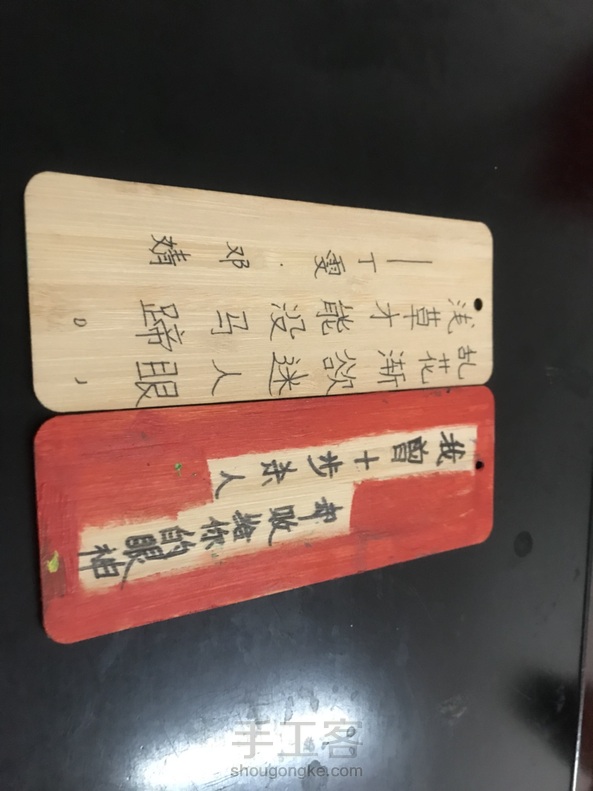 乱花渐欲迷人眼
浅草才能没马蹄
—丁雯·邓婧
D
我曾十步杀人
败给你的眼神
手工客
shougongke.com